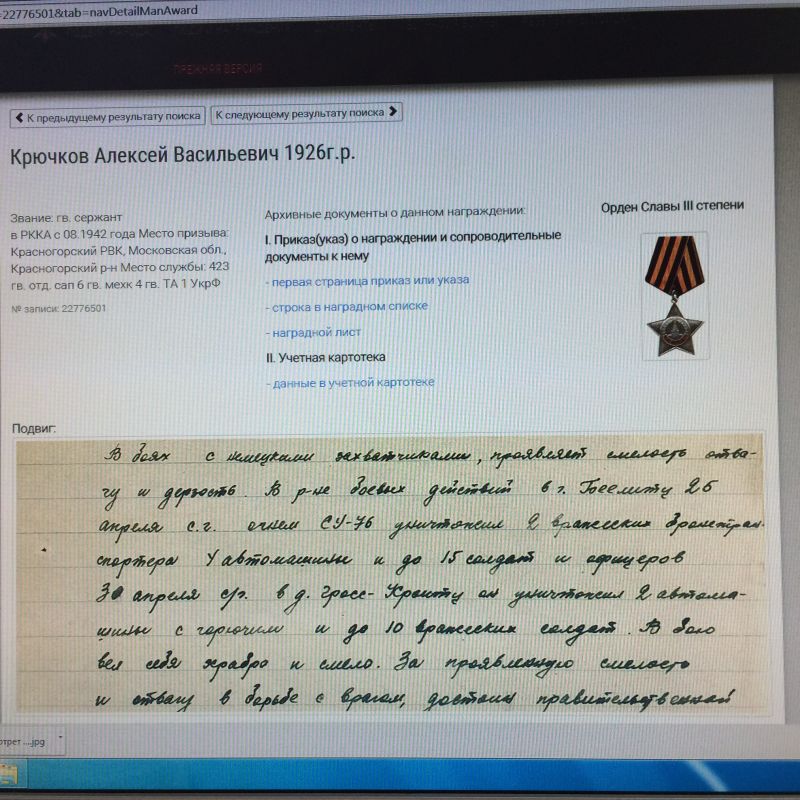 =22776501&tab=navDetailManAward
ПРЕЖНАЯ ВЕРСИЯ
К предыдущему результату поиска
К следующему результату поиска
Крючков Алексей Васильевич 1926г.р.
Звание: гв. сержант
в РККА с 08.1942 года Место призыва:
Красногорский РВК, Московская обл.,
Красногорский р-н Место службы: 423
гв. отд. сап 6 гв. мехк 4 гв. ТА 1 УкрФ
№ записи: 22776501
Архивные документы о данном награждении:
I. Приказ(указ) о награждении и сопроводительные
документы к нему
- первая страница приказ или указа
- строка в наградном списке
- наградной лист
II. Учетная картотека
- данные в учетной картотеке
Орден Славы III степени
Подвиг:
В боях с немецкими захватчиками, проявляет смелость отва-
гу и дерзость. В р-не боевых действий в г. 26
апреля с.г. огнем СУ-76 уничтожил 2 вражеских бронетран-
спортера 4 автомашины и до 15 солдат и офицеров
30 апреля с/г. в д. Гросс- он уничтожил 2 автома-
шины с горючим и до 10 вражеских солдат. В бою
вел себя храбро и смело. За проявленную смелость
и отвагу в борьбе с врагом, достоин правительственной
отрет ....jpg